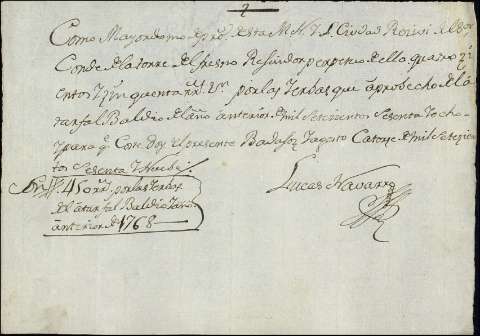 2
Como Mayordomo de pros. desta M. N. Y L. Ciudad Reciví del Sor.
Conde de la torre del fresno Residor perpetuo de ella quatroZi
entos Y Zinquenta rrs. Vn por las Yerbas que aprobecho del A
tarfal Baldio del año anterior de mil setezientos Sesenta Yocho
Y para q. Coste doy el presente Badajoz Y agosto Catorze de mil Setezien
tos Sesenta Y Nuebe
Son 450 rrs. por las Yerbas
del atarfal Baldio Y año
anterior de 1768
Lucas Navarro